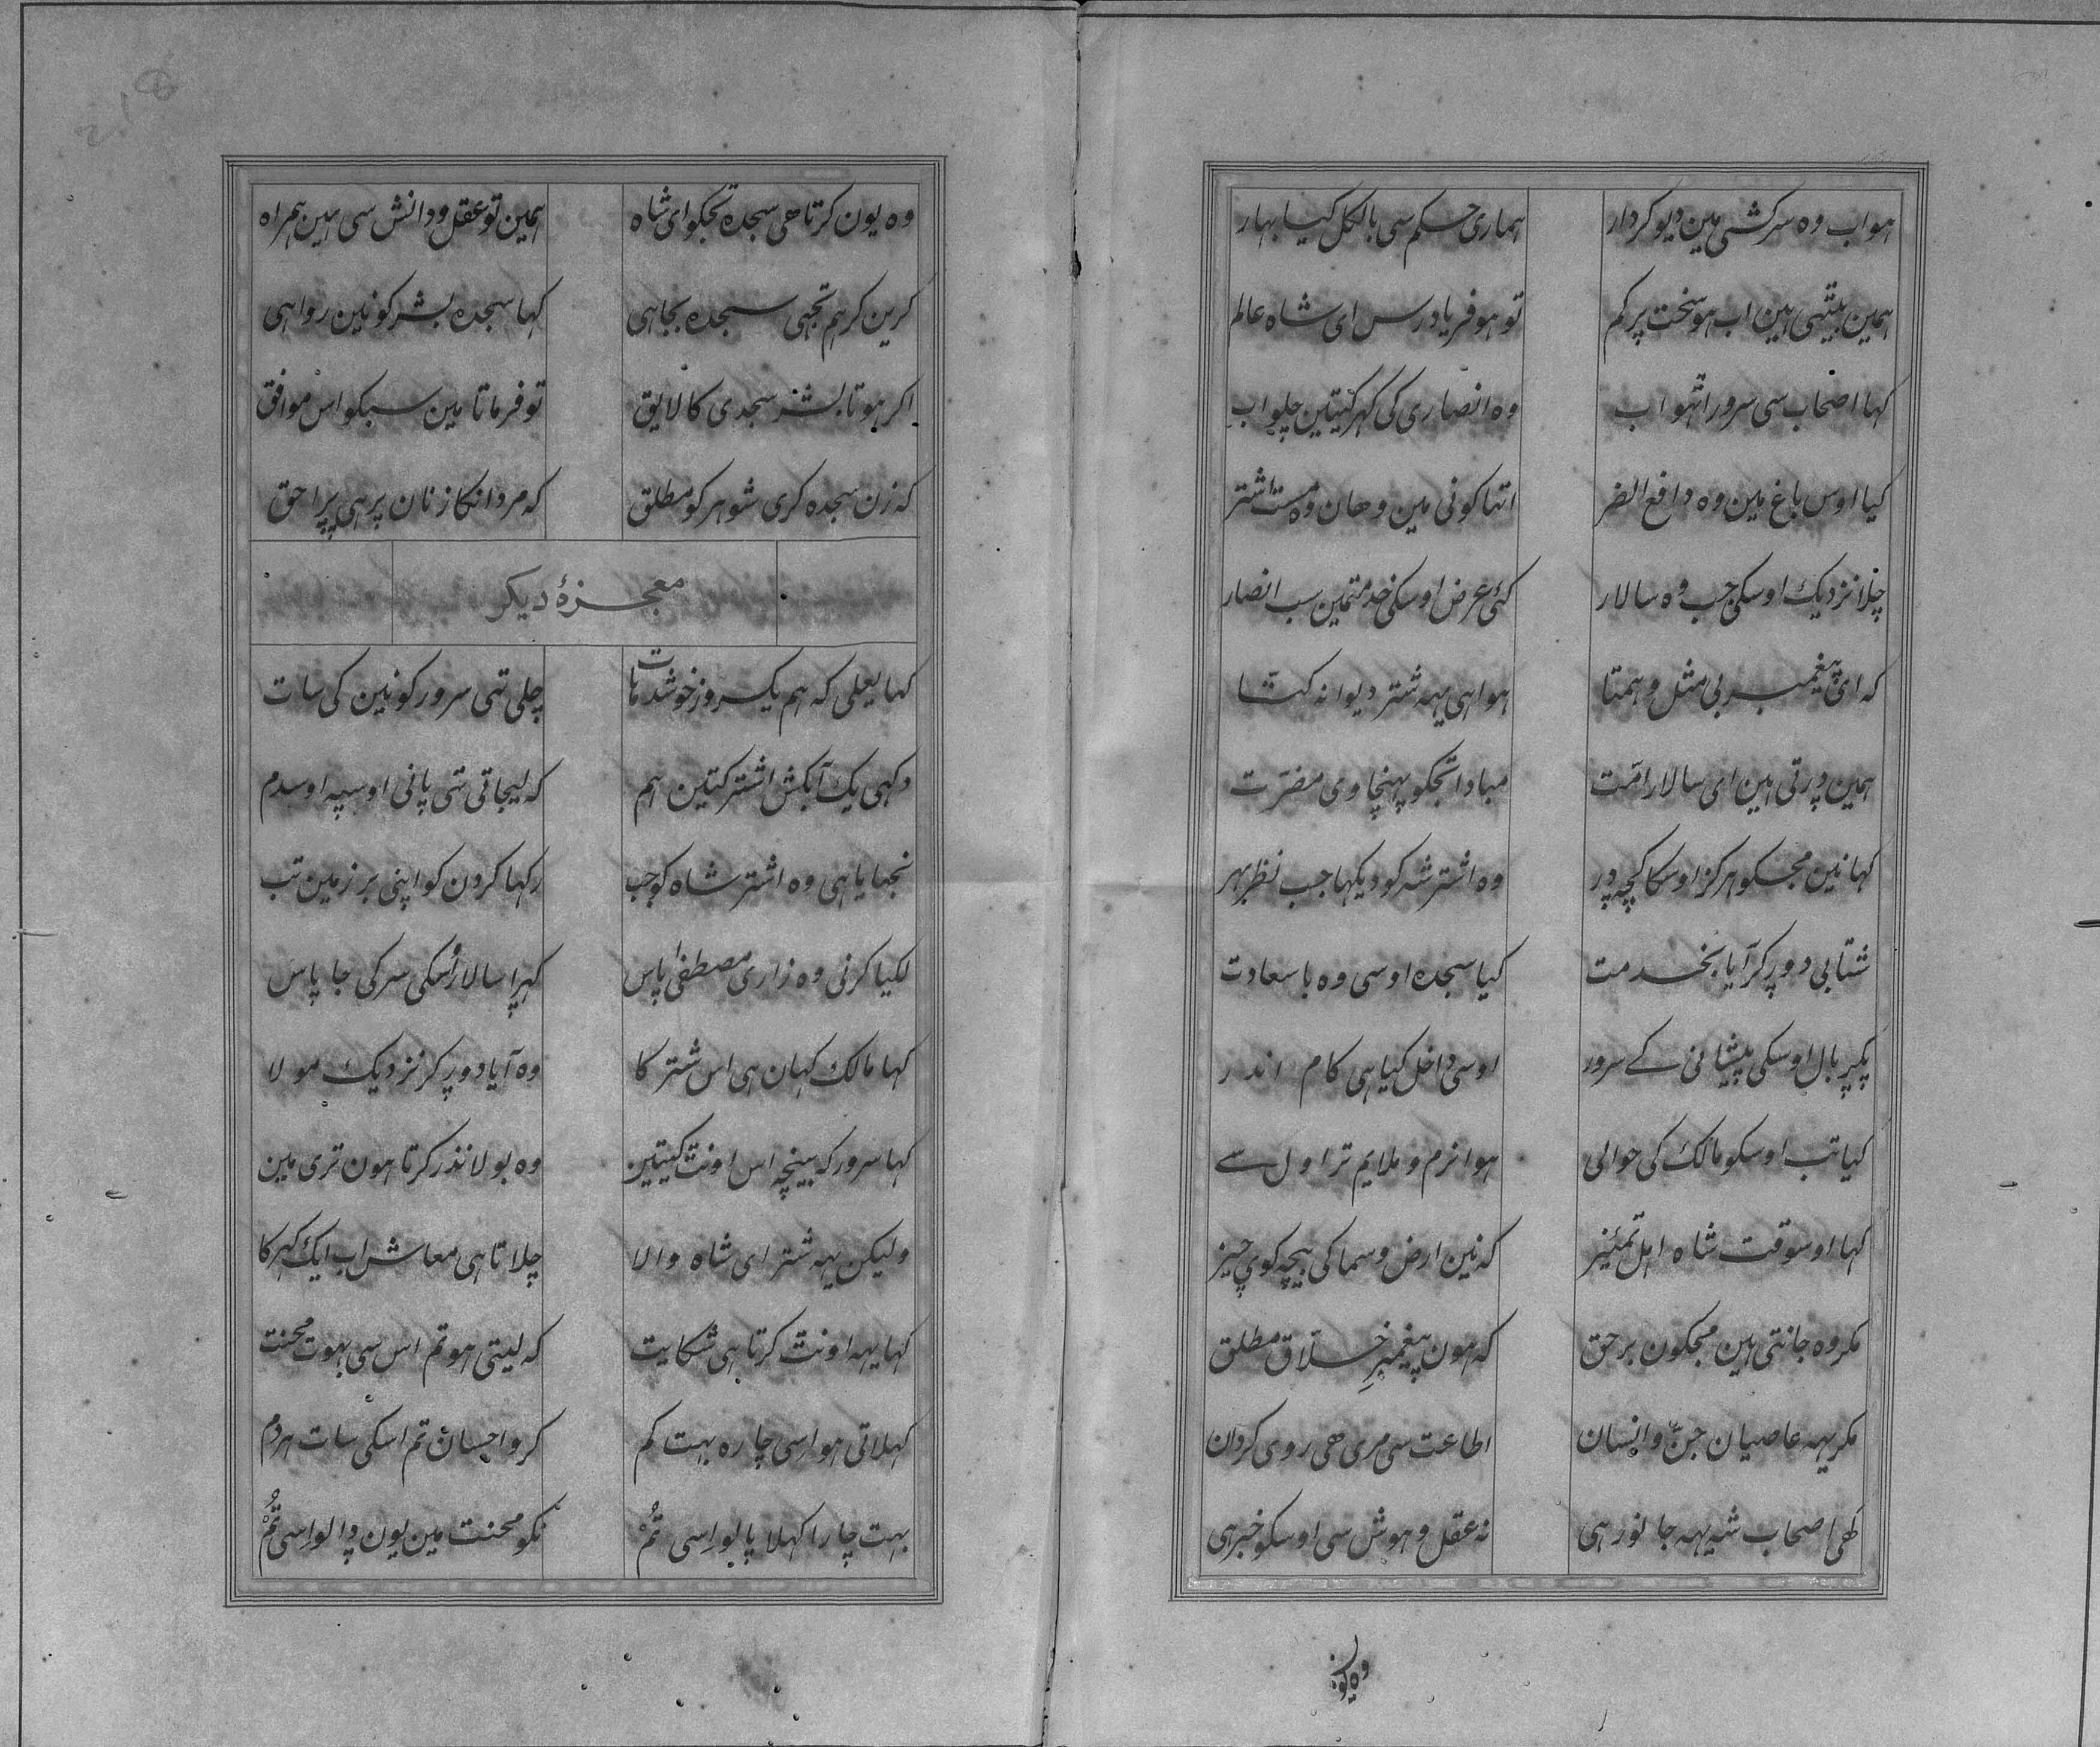 ہواب وہ سرکشی مین دیو کردار ہماری حکم سی بالکل کیا بہار
ہمین بیتہی ہین اب ہو سخت پرکم تو ہو فریادرس ای شاہ عالم
کہا اصحاب سی سرور اتہو اب وہ انصاری کی کہر کیتین چلو اب
کیا اوس باغ مین وہ دافع الضر اتہا کونی مین وحان وہ مست اشتر
چلا نزدیک اوسکی جب وہ سالار کئی عرض اوسکی خدمتمین سب انصار
کہ ای پیغیمبر بی مثل و ہمتا ہوا ہی یہہ شتر دیوانہ کتا
ہمین ڈرتی ہین ای سالار امّت مبادا تجکو پہنچاوی مضرّت
کہا نین مجکو ہرکز اوسکا کچہ ڈر وہ اشتر شہ کو دیکہا جب نظر بہر
شتابی دوڑ کر آیا بخدمت کیا سجدہ اوسی وہ باسعادت
پکڑ بال اوسکی پیشانی کے سرور اوسی داخل کیا ہی کام اندر
کیا تب اوسکو مالک کی حوالی ہوا نرم و ملایم تر اول سے
کہا اوسوقت شاہ اہل تمئیز کہ نین ارض و سما کی بیچہ کوی چیز
مکر وہ جانتی ہین مجکون برحق کہ ہون پیغمبرِ خلاق مطلق
مکر یہہ عاصیان جنّ و انسان اطاعت سی مری ھی روی کردان
کھی اصحاب شہ یہہ جانور ہی نہ عقل و ہوش سی اوسکو خبر ہی
وہ یون
وہ یون کرتا ھی سجدہ تجکو ای شاہ ہمین تو عقل و دانش سی ہین ہمراہ
کرین کر ہم تجہی سجدہ بجا ہی کہا سجدہ بشر کو نین روا ہی
اکر ہوتا بشر سجدی کا لایق تو فرماتا مین سبکو اس موافق
کہ زن سجدہ کری شوہر کو مطلق کہ مردانکا زنان پر ہی بڑا حق
معجزۂ دیکر
کہا یعلی کہ ہم یک روز خوش دہات چلی تہی سرور کونین کی سات
دکہی یک آبکش اشتر کتین ہم کہ لیجاتی تہی پانی اوسپہ اوسدم
نجہایا ہی وہ اشتر شاہ کو جب رکہا کردن کو اپنی بر زمین تب
لکیا کرنی وہ زاری مصطفی پاس کہڑا سالار اُسکی سر کی جا پاس
کہا مالک کہان ہی اس شتر کا وہ آیا دوڑ کر نزدیک مولا
کہا سرور کہ بینچہ اس اونٹ کیتین وہ بولا نذر کرتا ہون تری مین
ولیکن یہہ شتر ای شاہ والا چلاتا ہی معاش اب ایک کہر کا
کہا یہہ اونٹ کرتا ہی شکایت کہ لیتی ہو تم اس سی بہوت محنت
کہلاتی ہو اسی چارہ بہت کم کرو احسان تم اسکی سات ہر دم
بہت چارا کہلا پالو اِسی تُمْ نکو محنت مین یون ڈالو اِسی تُمْ